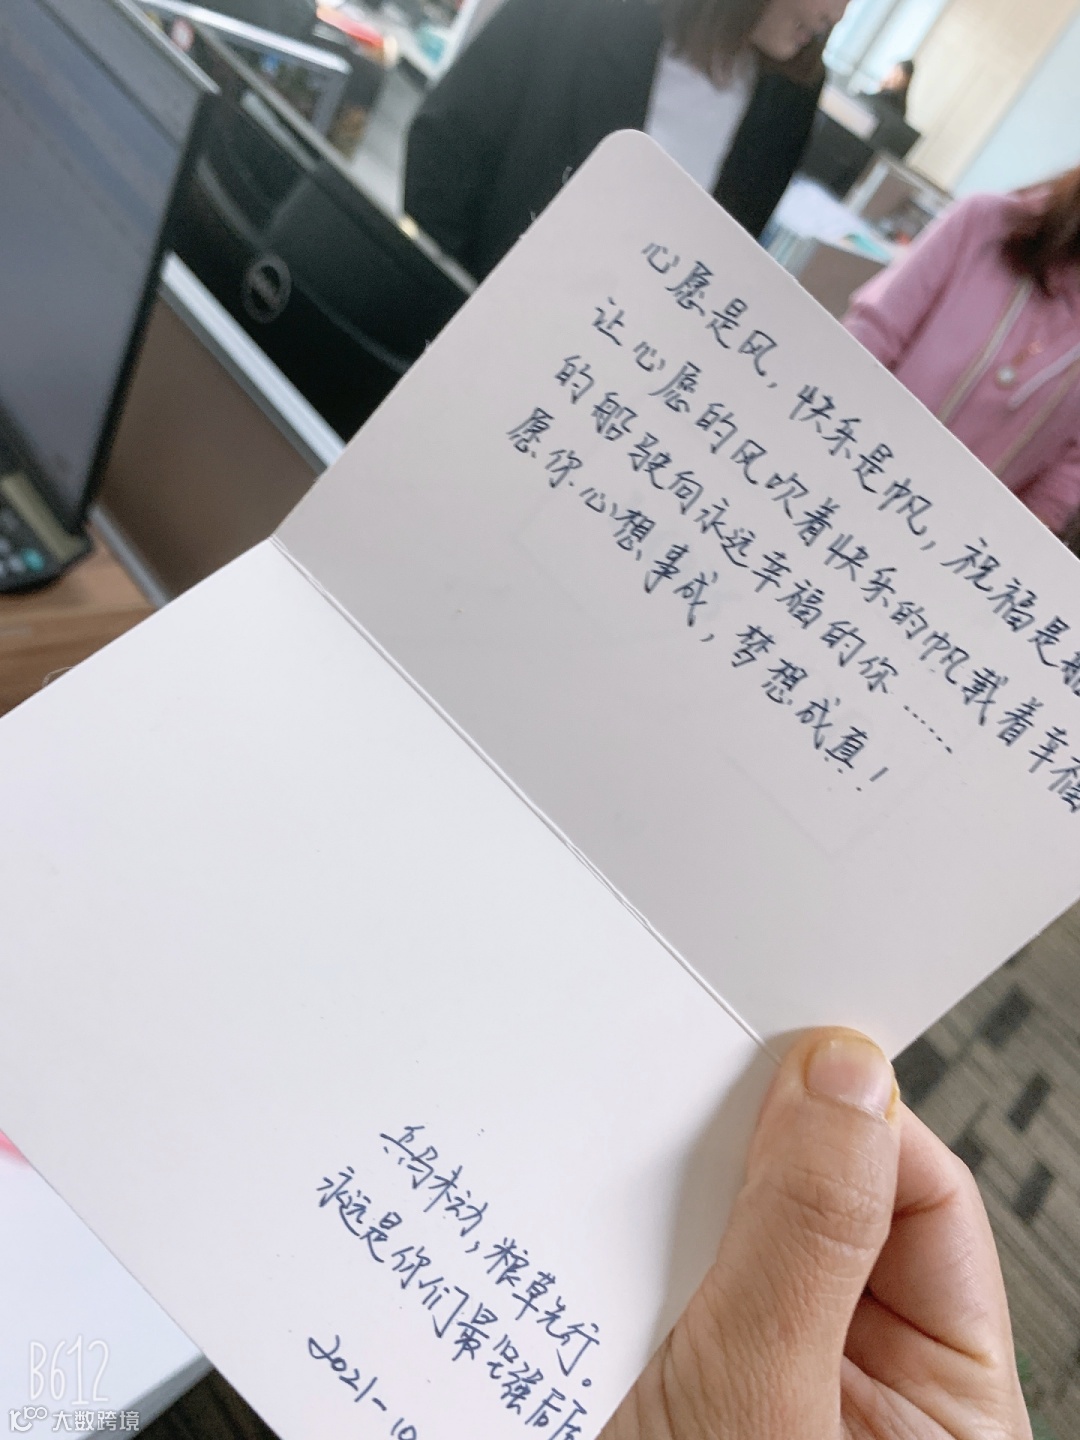 心愿是风，快乐是帆，祝福是船
让心愿的风吹着快乐的帆载着幸福
的船驶向永远幸福的你……
愿你心想事成，梦想成真！
兵马未动，粮草先行。
永远是你们最坚强后盾
2021-10
DELL
B612
大数跨境